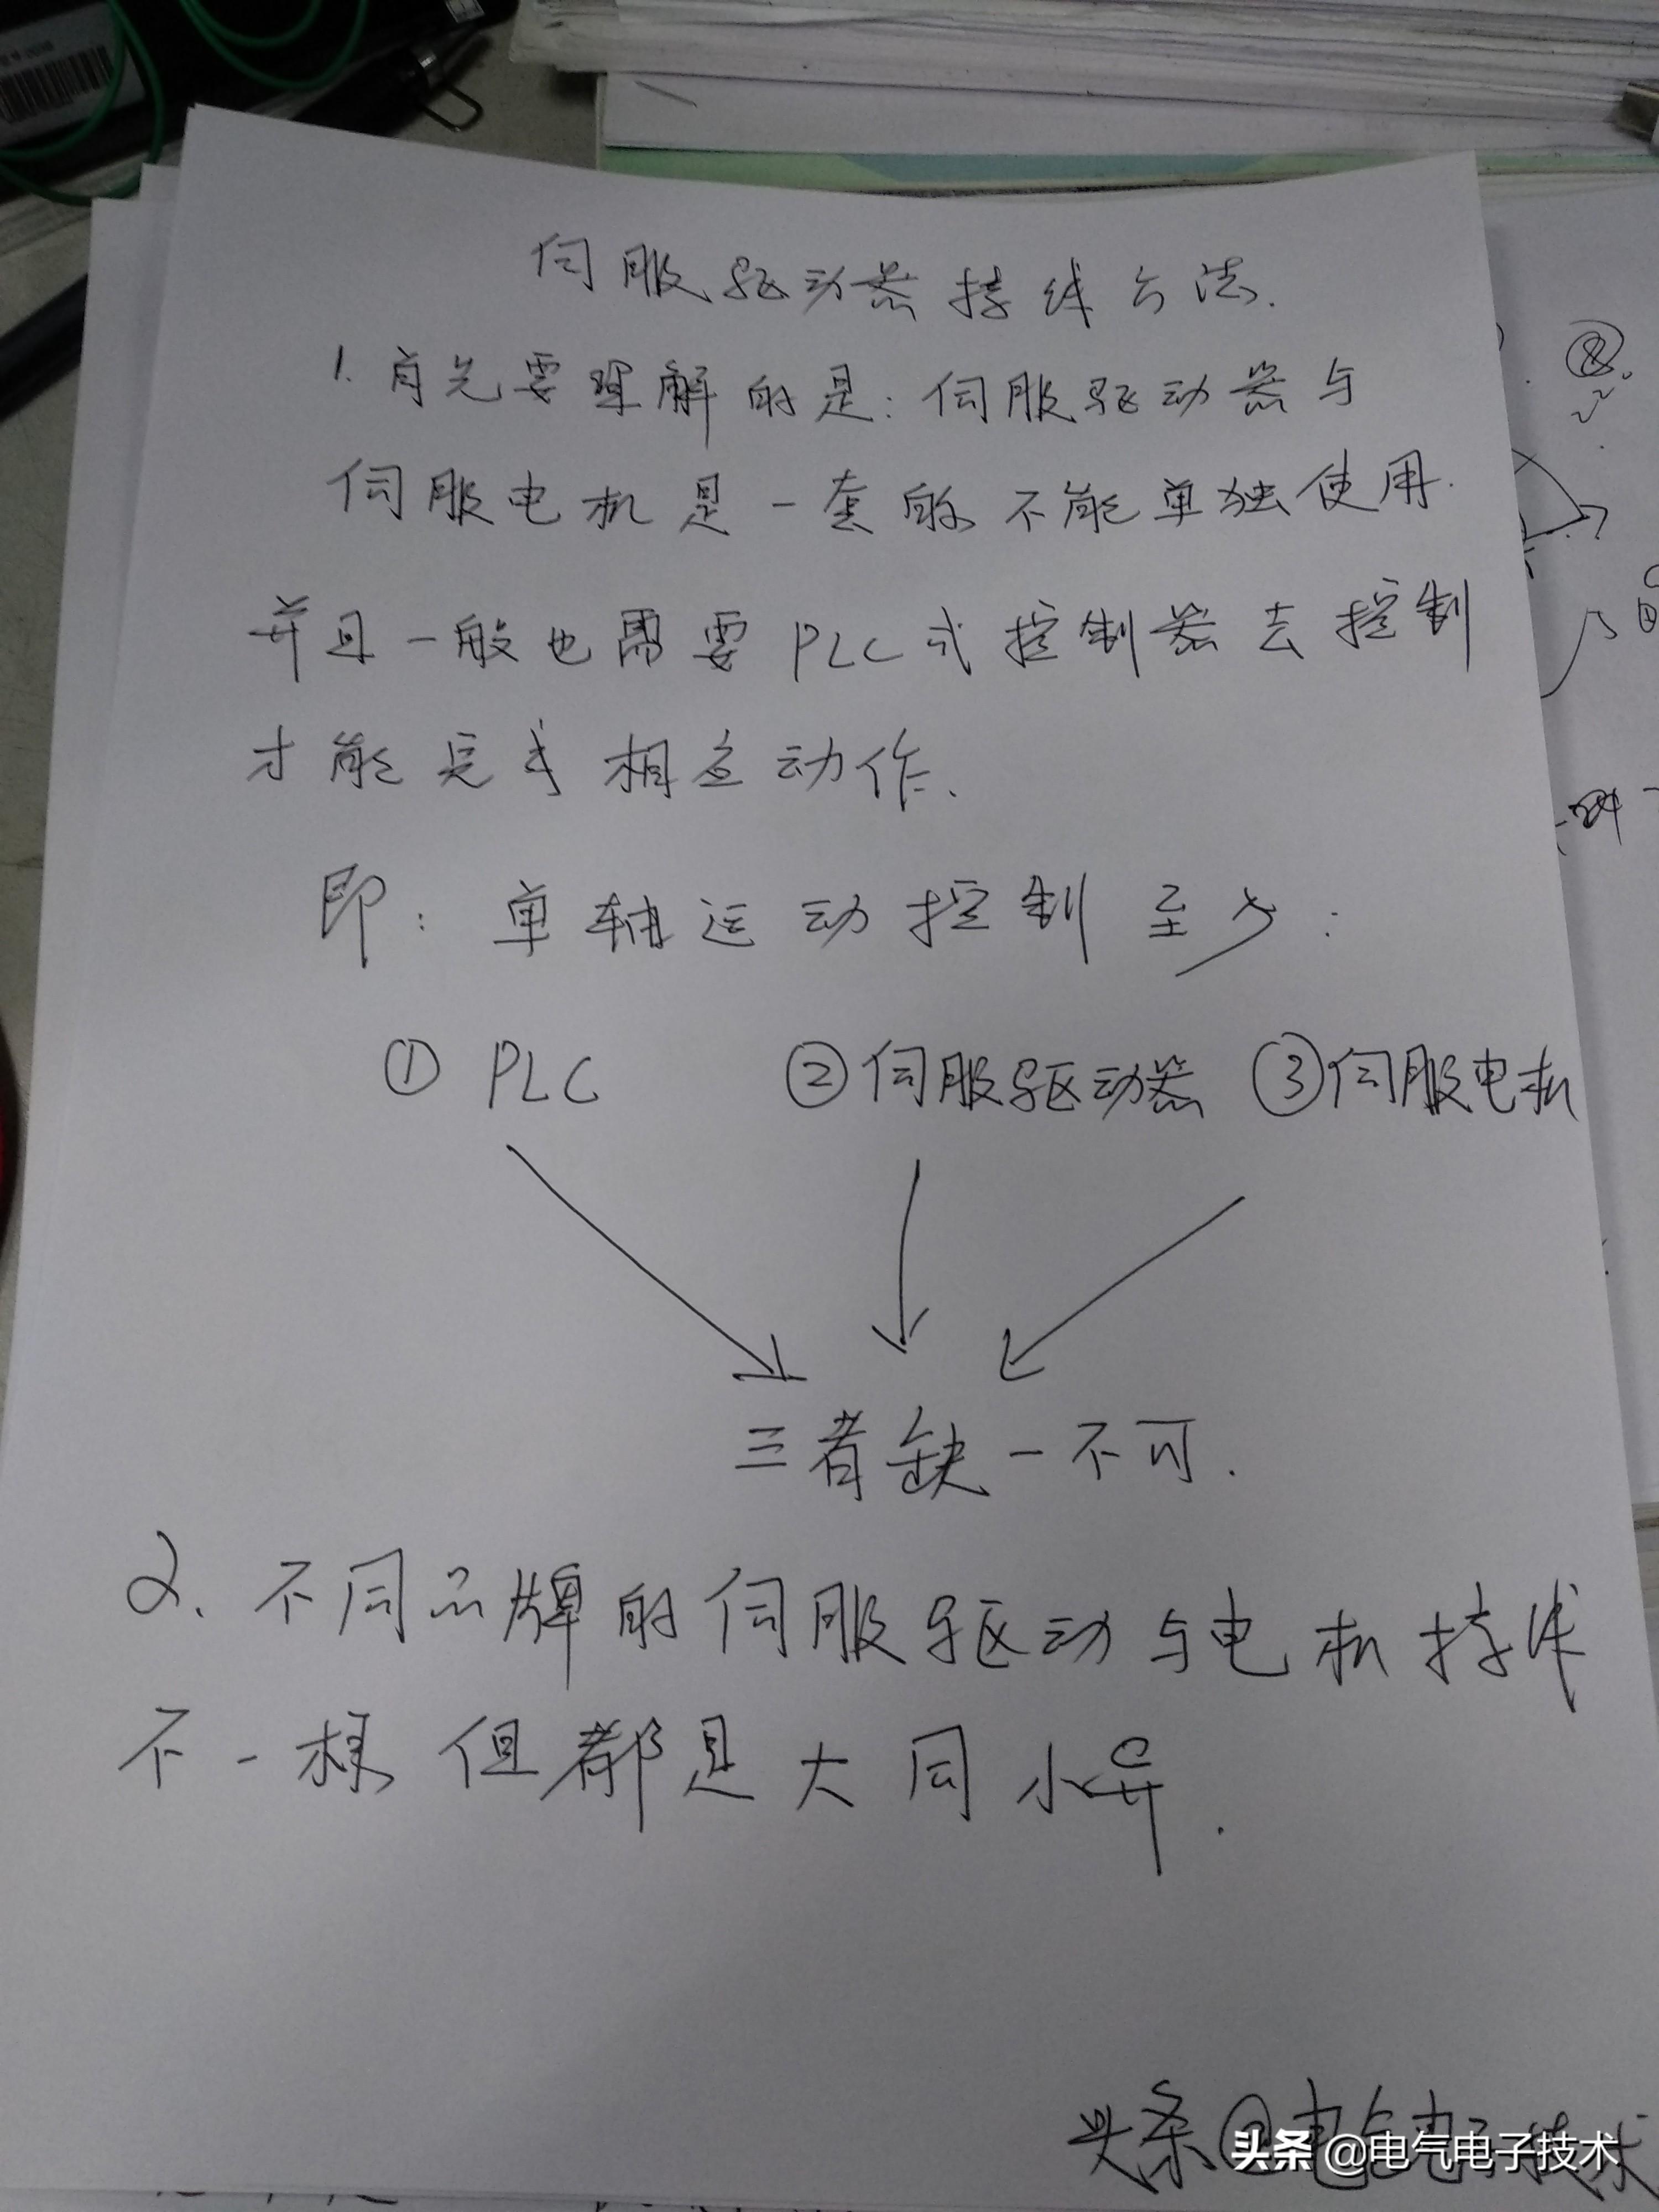 伺服驱动器接线方法.
1.首先要理解的是:伺服驱动器与
伺服电机是一套的不能单独使用.
并且一般也需要PLC或控制器去控制
才能完成相应动作.
即:单轴运动控制至少:
①PLC ②伺服驱动器 ③伺服电机
三者缺一不可.
2.不同品牌的伺服驱动与电机接线
不一样但都是大同小异.
头条@电气电子技术
头条@电气电子技术